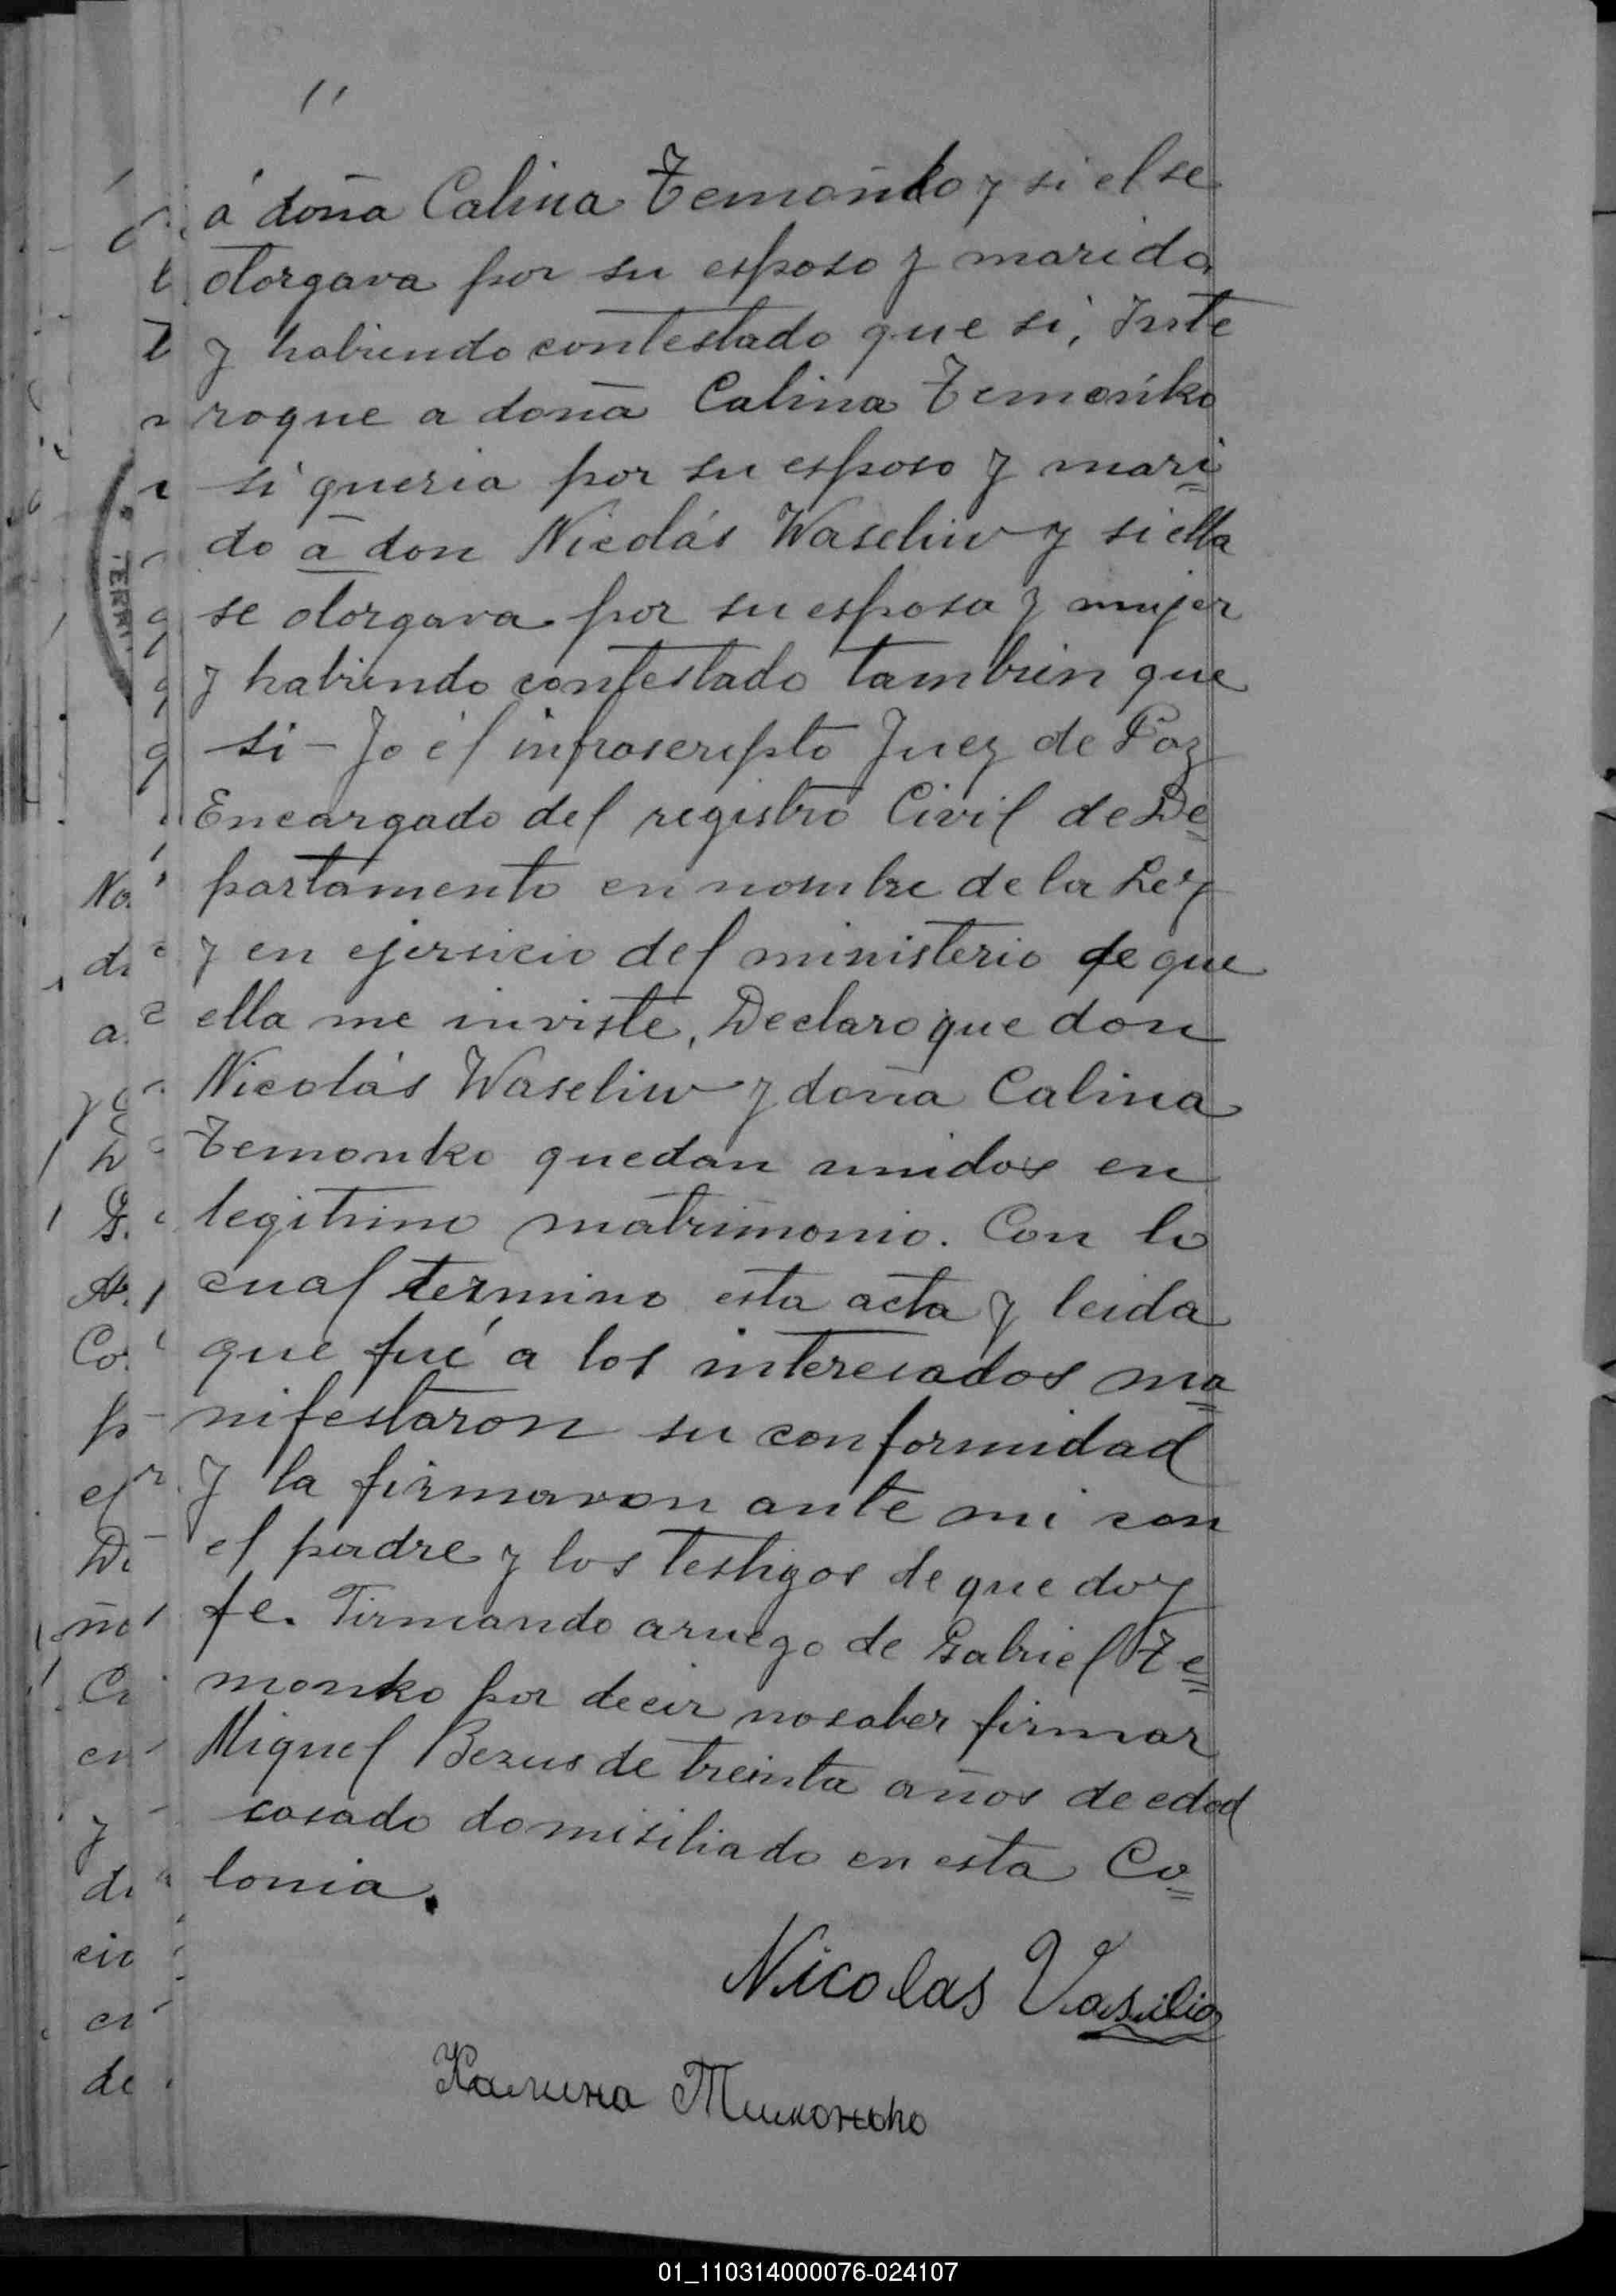 11
á doña Calina Temonko y si el se
otorgava por su esposo y marido,
y habiendo contestado que si, Inte
rogue a doña Calina Temonko
si queria por su esposo y mari=
do a don Nicolás Waseliw y si ella
se otorgava por su esposa y mujer
y habiendo contestado tambien que
si - Yo el infrascripto Juez de Paz
Encargado del registro Civil de De=
partamento en nombre de la Ley
y en ejersicio del ministerio de que
ella me inviste, Declaro que don
Nicolás Waseliw y doña Calina
Temonko quedan unidos en
legitimo matrimonio. Con lo
cual termino esta acta y leida
que fué a los interesados ma=
nifestaron su conformidad
y la firmaron ante mi con
el padre y los testigos de que doy
fe. Firmando a ruego de Gabriel Te=
monko por decir no saber firmar
Miguel Bezus de treinta años de edad
casado domisiliado en esta Co=
lonia.
Nicolas Vasilio
Калина Тимонько
TERRI
01_110314000076-024107